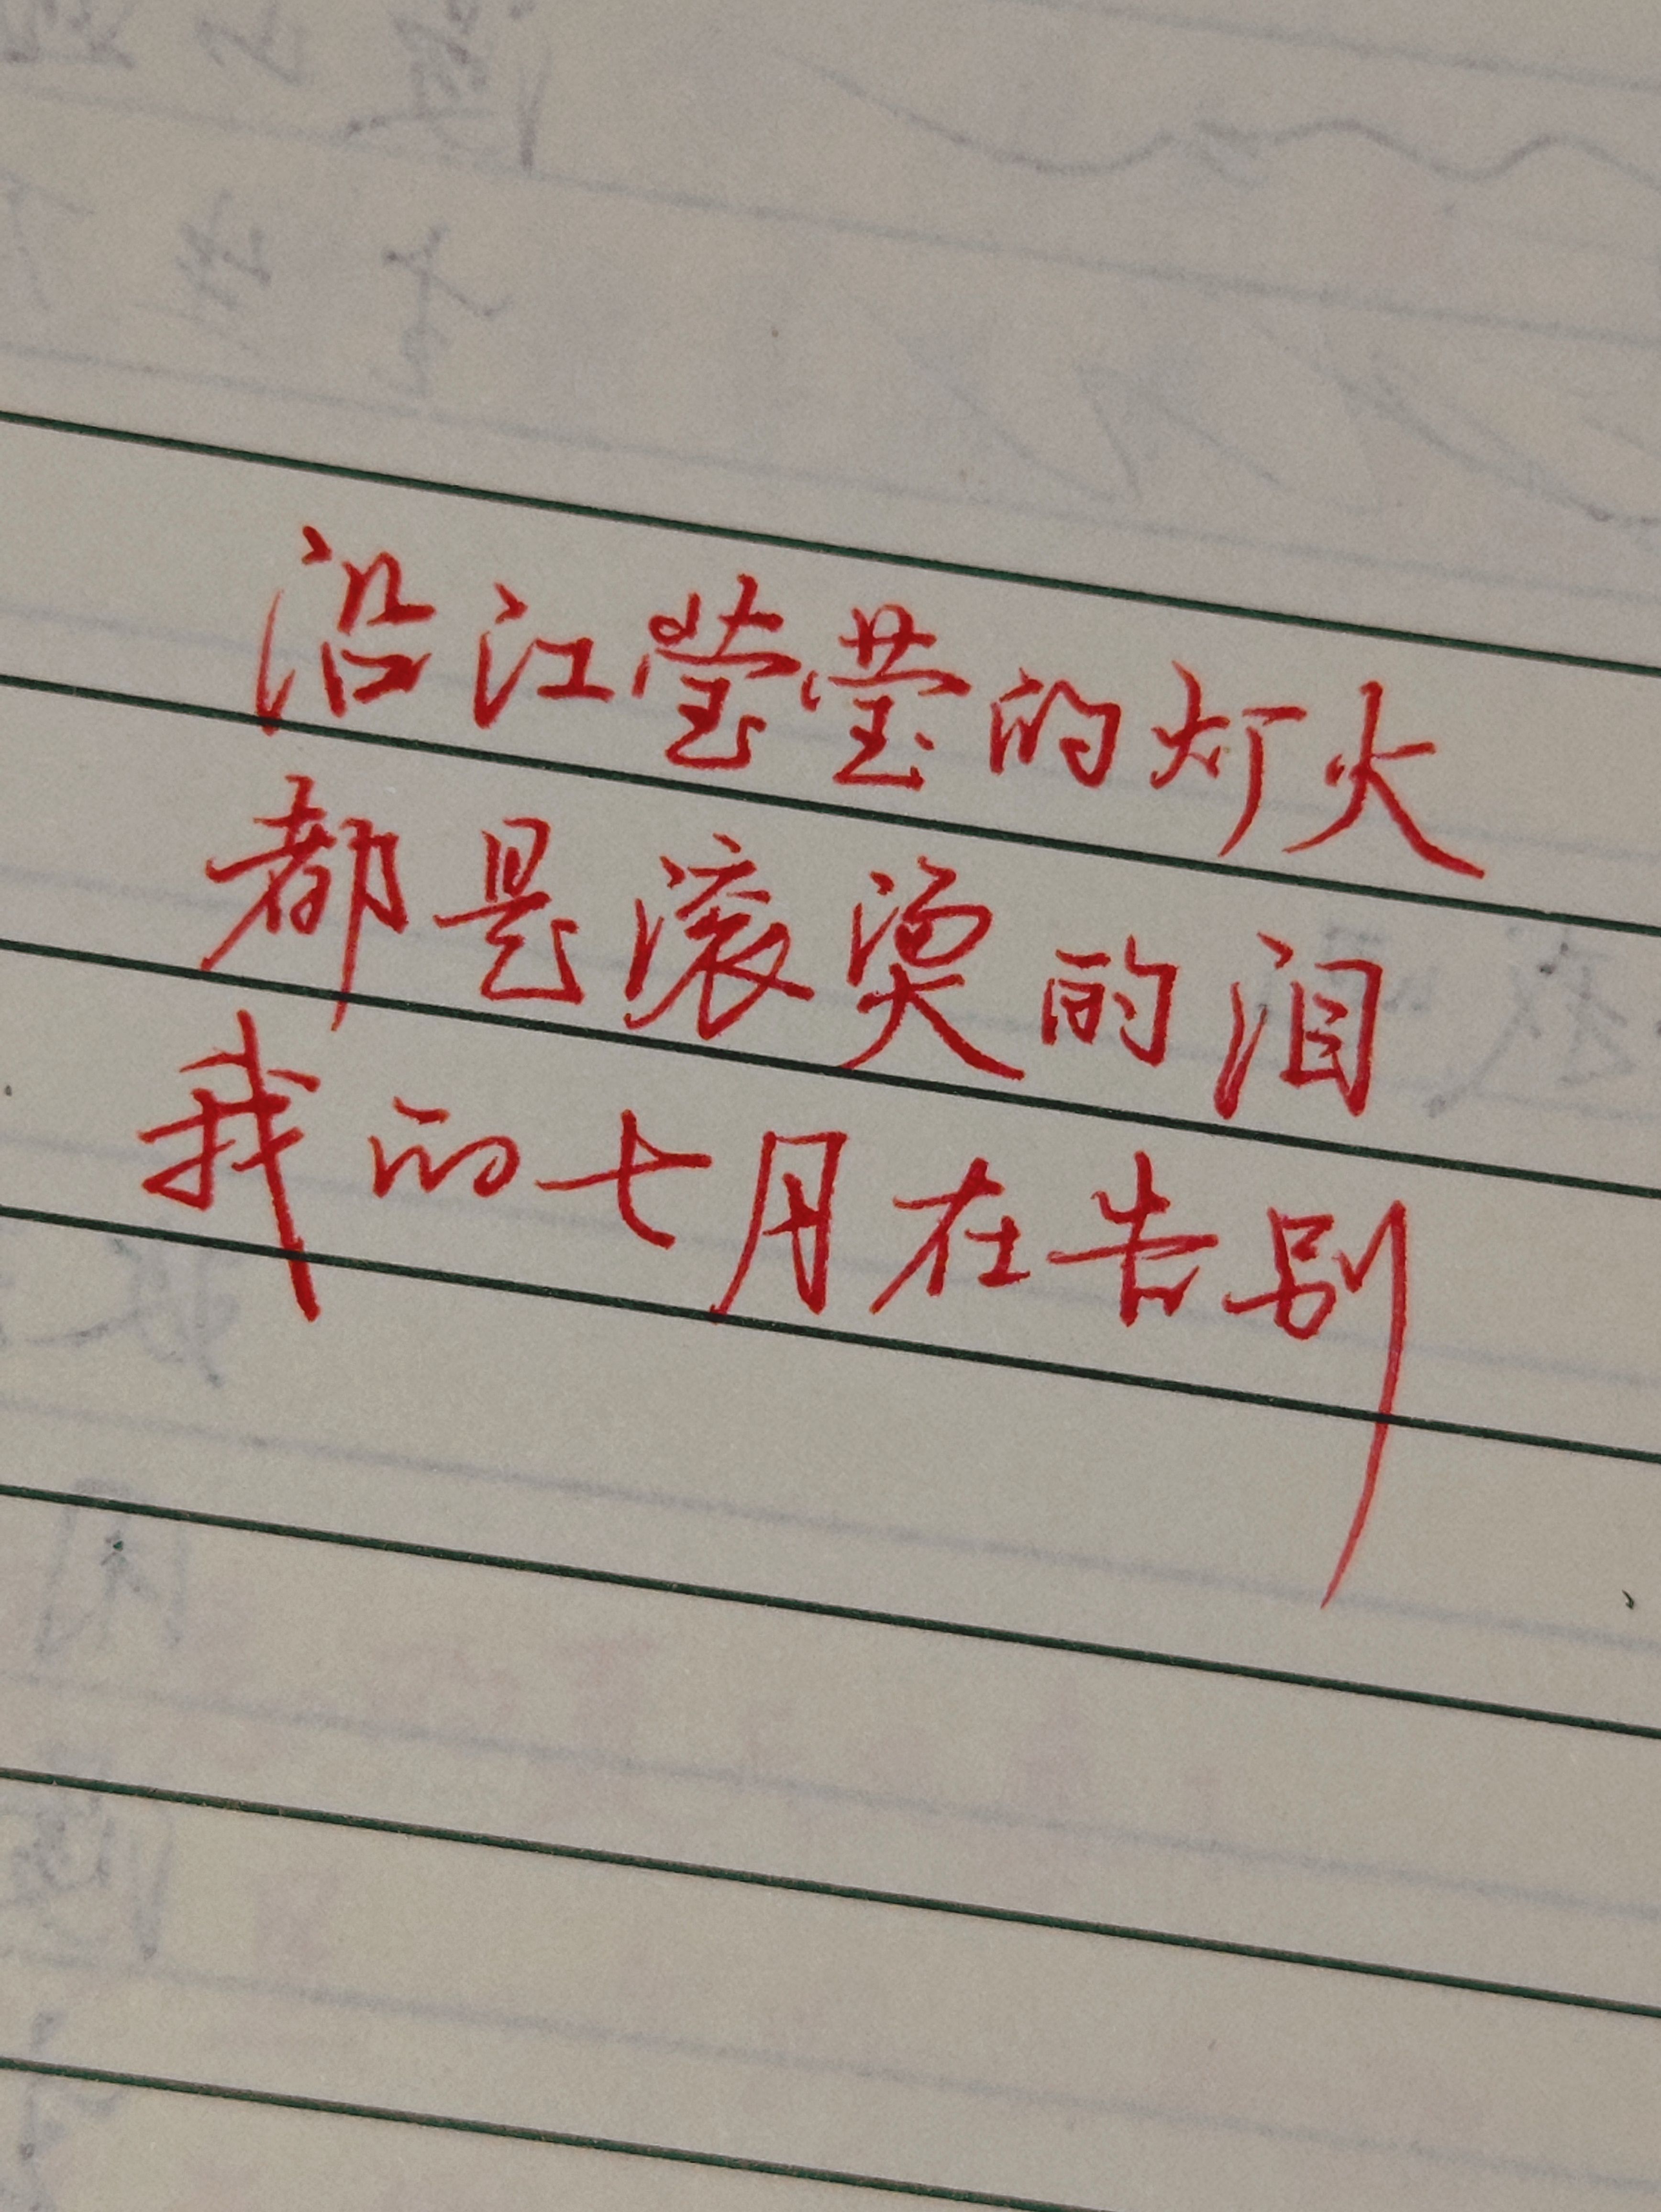 沿江莹莹的灯火
都是滚烫的泪
我的七月在告别